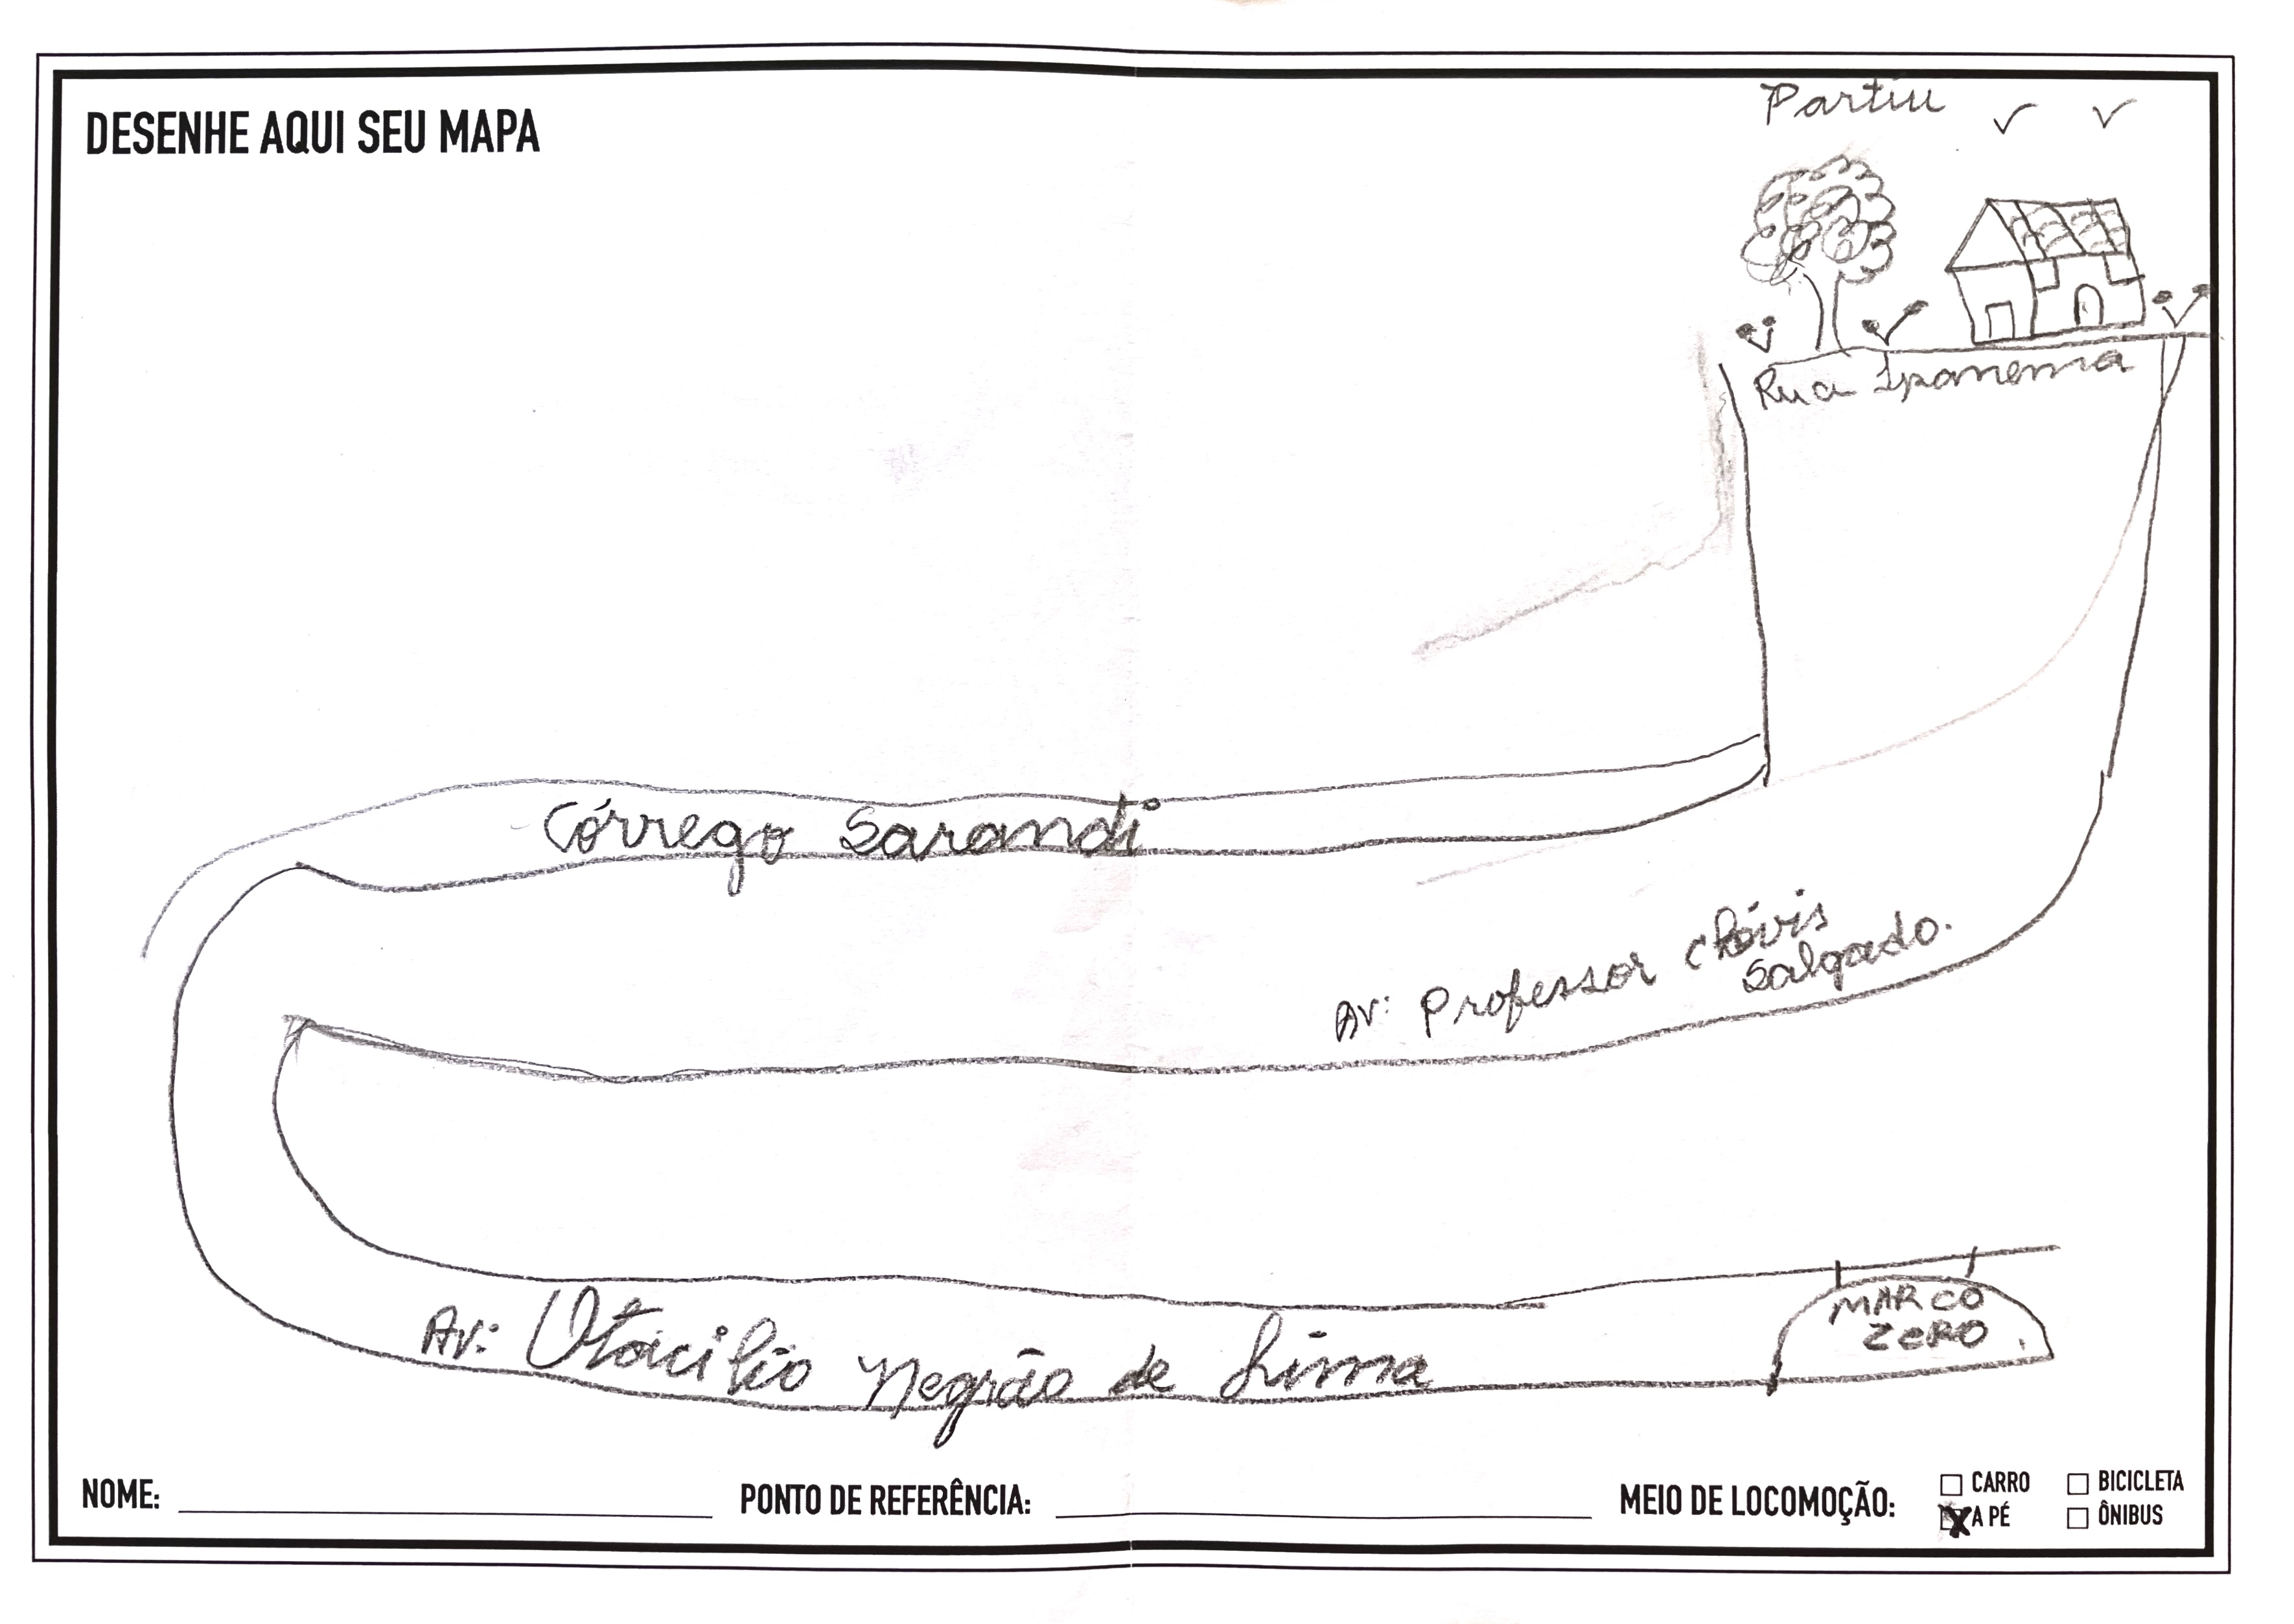 DESENHE AQUI SEU MAPA
Partiu
Rua Ipanema
Córrego Sarandi
Av: Professor Clóvis
Salgado.
MARCO
ZERO
Av: Otacílio Negrão de Lima
NOME:
PONTO DE REFERÊNCIA:
MEIO DE LOCOMOÇÃO:
CARRO
BICICLETA
A PÉ
ÔNIBUS